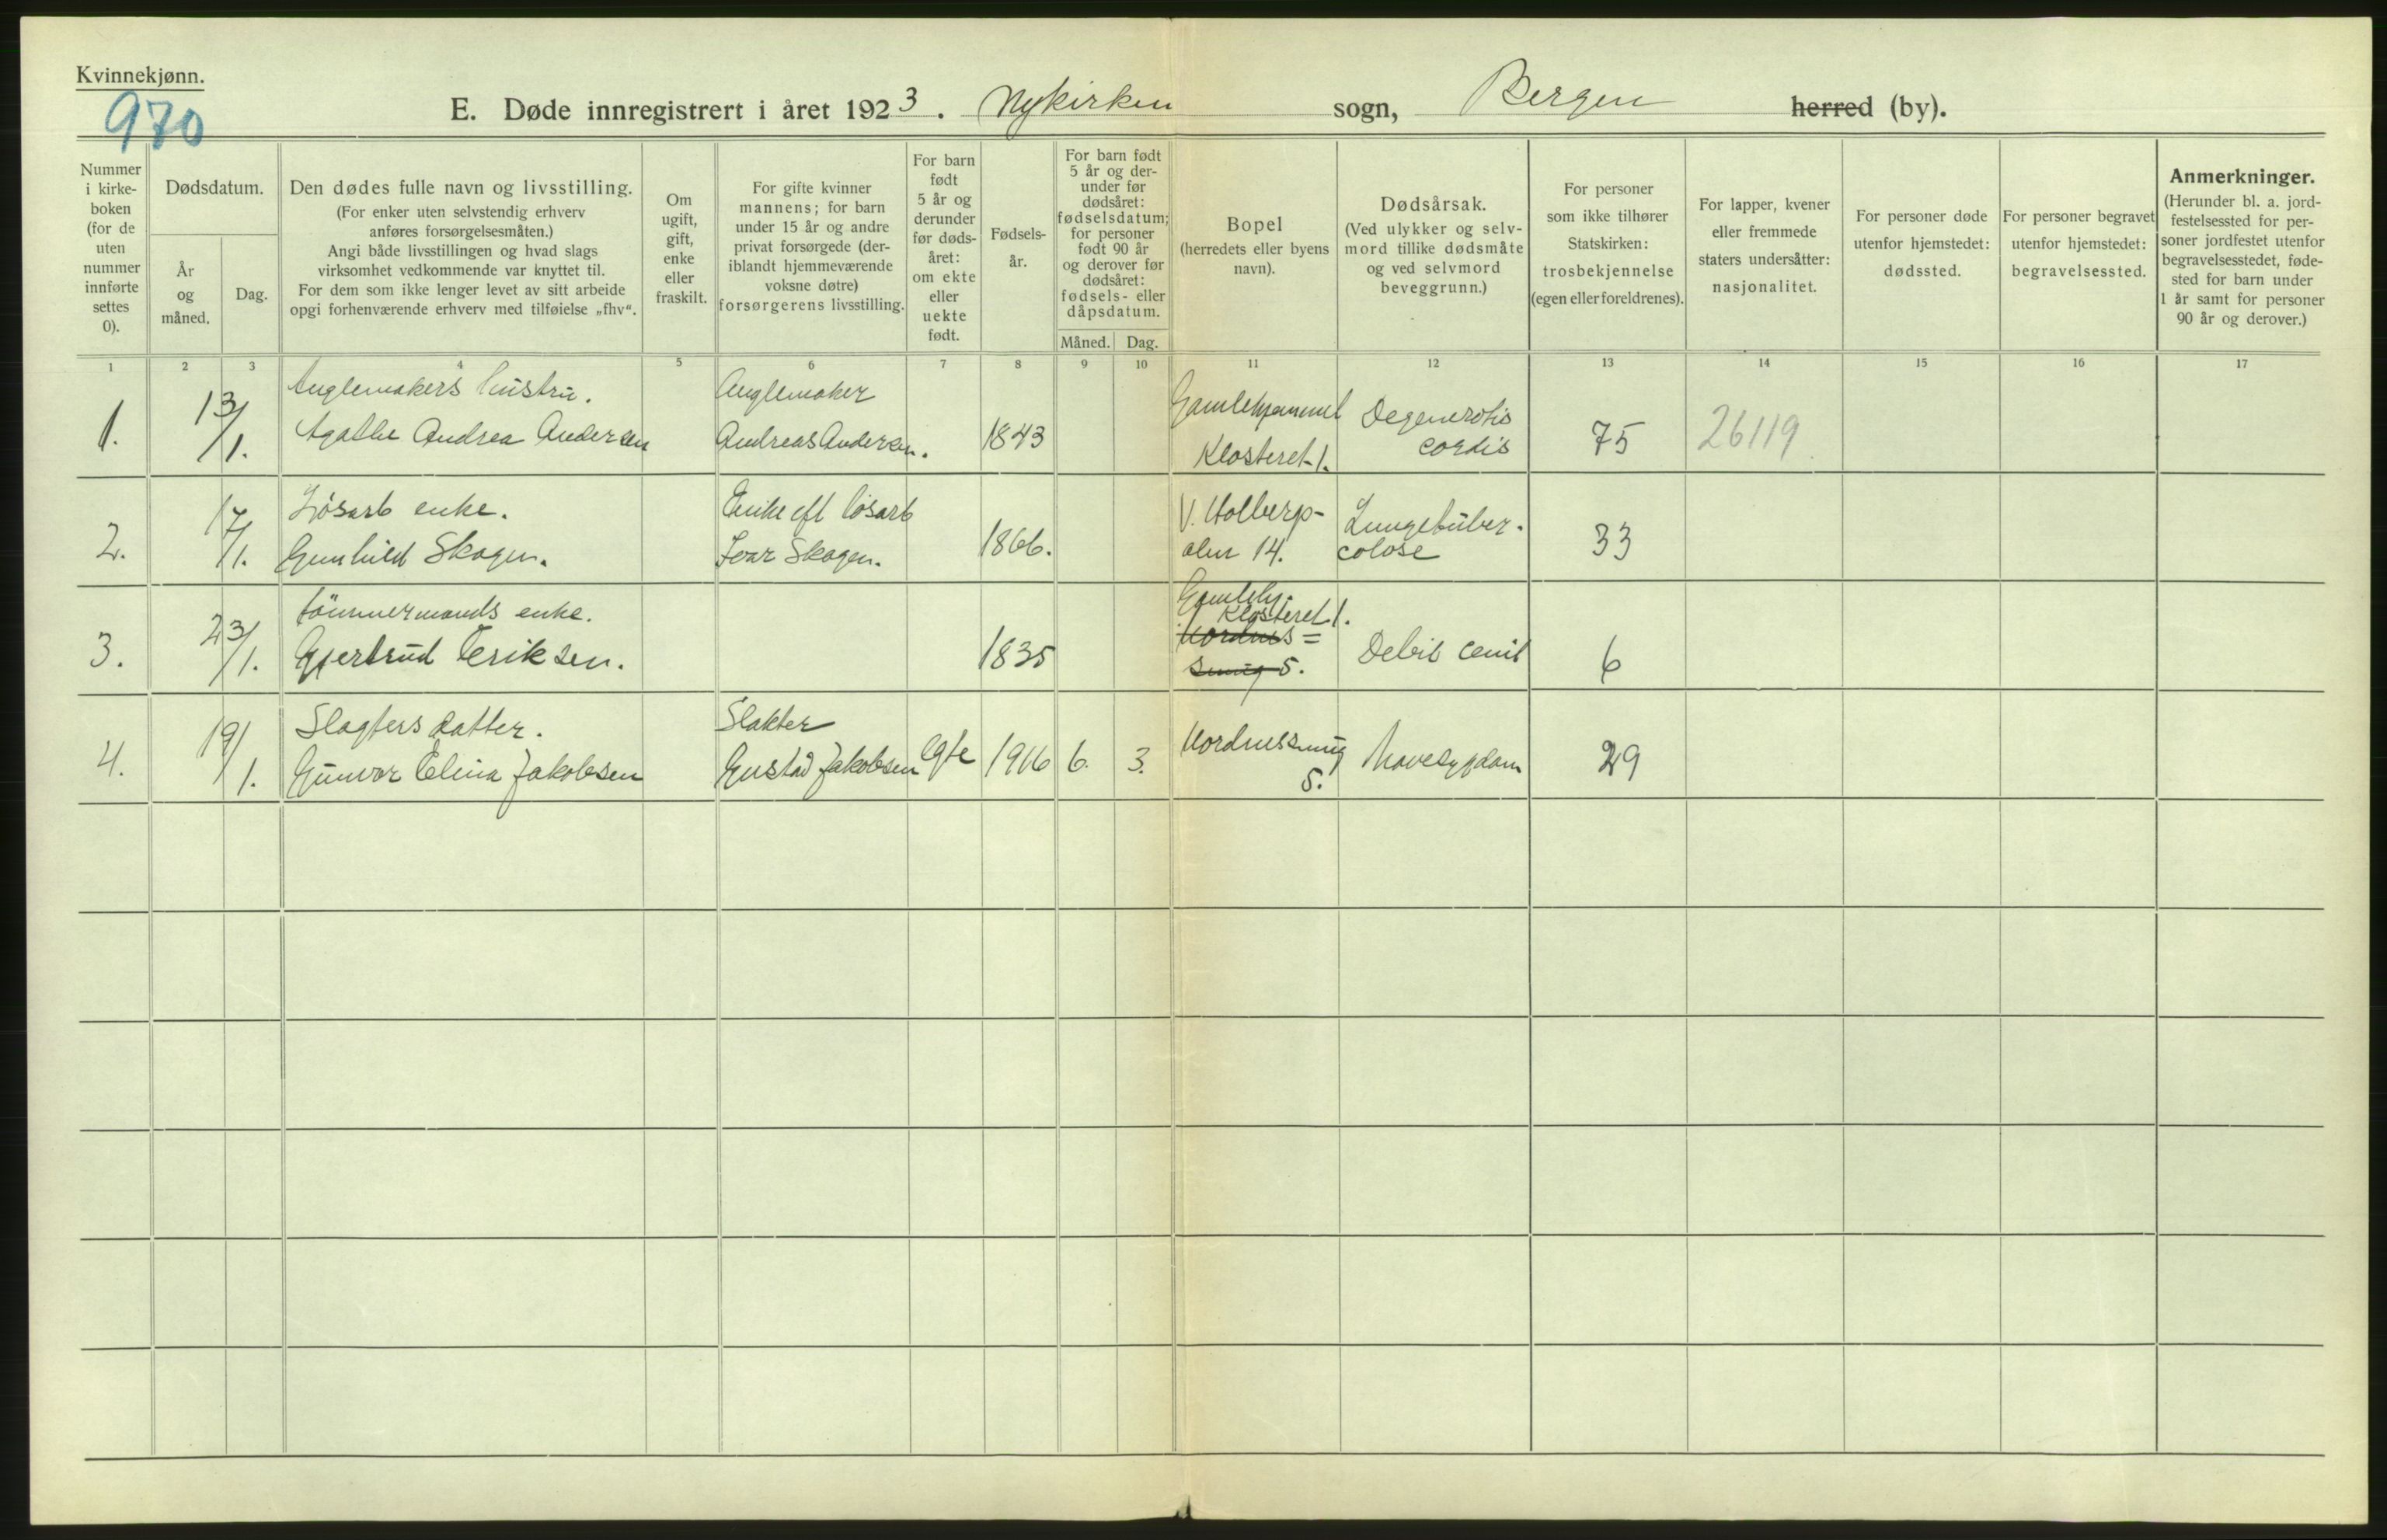 Kvinnekjønn.
970
E. Døde innregistrert i året 1923. Nykirken sogn, Bergen herred (by).
Nummer i kirke-boken (for de uten nummer innførte settes 0).
Dødsdatum.
År og måned.
Dag.
Den dødes fulle navn og livsstilling.
(For enker uten selvstendig erhverv
anføres forsørgelsesmåten.)
Angi både livsstillingen og hvad slags
virksomhet vedkommende var knyttet til.
For dem som ikke lenger levet av sitt arbeide
opgi forhenværende erhverv med tilføielse „fhv“.
Om ugift, gift, enke eller fraskilt.
For gifte kvinner
mannens; for barn
under 15 år og andre
privat forsørgede (der-
iblandt hjemmeværende
voksne døtre)
forsørgerens livsstilling.
For barn
født
5 år og
derunder
før døds-
året:
om ekte
eller
uekte
født.
Fødsels-
år.
For barn født
5 år og der-
under før
dødsåret:
fødselsdatum;
for personer
født 90 år
og derover før
dødsåret:
fødsels- eller
dåpsdatum.
Måned. Dag.
Bopel
(herredets eller byens
navn).
Dødsårsak.
(Ved ulykker og selv-
mord tillike dødsmåte
og ved selvmord
beveggrunn.)
For personer
som ikke tilhører
Statskirken:
trosbekjennelse
(egen eller foreldrenes).
For lapper, kvener
eller fremmede
staters undersåtter:
nasjonalitet.
For personer døde
utenfor hjemstedet:
dødssted.
For personer begravet
utenfor hjemstedet:
begravelsessted.
Anmerkninger.
(Herunder bl. a. jord-
festelsessted for per-
soner jordfestet utenfor
begravelsesstedet, føde-
sted for barn under
1 år samt for personer
90 år og derover.)
1 2 3 4 5 6 7 8 9 10 11 12 13 14 15 16 17
1. 13/1. Anglemakers hustru. Agathe Andrea Andersen
Anglemaker Andreas Andersen. 1843
Klosteret 1. Degeneratio cordis 75 26119
2. 17/1. Løsarb enke. Gunhild Skogen.
Enke eft løsarb Ivar Skogen. 1866.
V. Holbergs-alm 14. Lungetuber-colose 33
3. 23/1. Tömmermands enke. Gjertrud Eriksen. 1835
Gamlehj. Klosteret 1. Nordnes=smug 5. Debil cenil 6
4. 19/1. Slagters datter. Gunvor Elina Jakobsen
Slakter Gustav Jakobsen Egte 1916 6. 3.
Nordnessmug 5. Mavesygdom 29